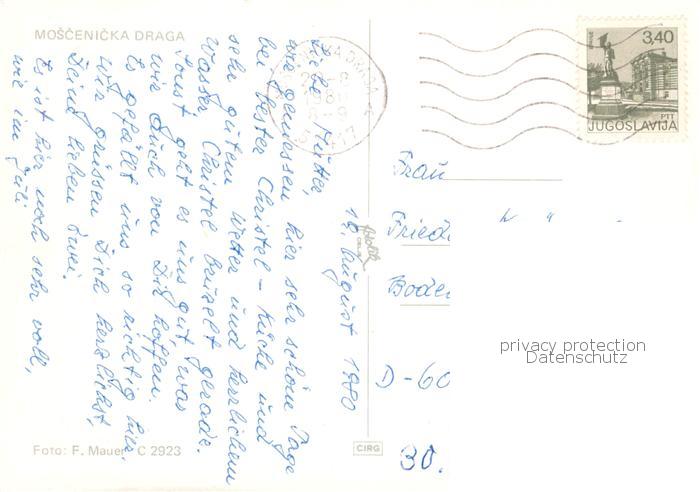 MOŠČENIČKA DRAGA
18. August 1980
Liebe Mutter,
wir geniessen hier sehr schöne Tage
bei bester Christel-Küche und
sehr gutem Wetter und herrlichem
Wasser. Christel brutzelt gerade.
Sonst geht es uns gut, was
wir auch von Dir hoffen.
Es gefällt uns so richtig hier.
Wir grüssen Dich herzlichst,
Deine lieben zwei.
Es ist hier noch sehr voll,
wie im Juli
Foto: F. Mauer C 2923
CIRG
3,40
PTT
JUGOSLAVIJA
DRAGA
Frau
Fried
Boden
D-60
30.
privacy protection
Datenschutz